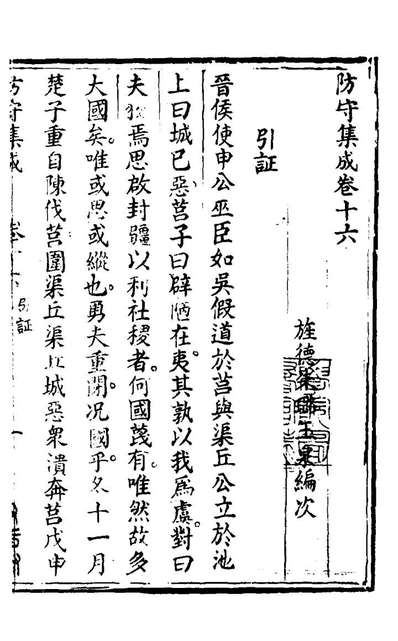 防守集成卷十六
旌德朱璐玉泉編次
引証
晉侯使申公巫臣如吳假道於莒與渠丘公立於池
上曰城已惡莒子曰辟陋在夷其孰以我爲虞對曰
夫狡焉思啟封疆以利社稷者何國蔑有唯然故多
大國矣唯或思或縱也勇夫重閉况國乎冬十一月
楚子重自陳伐莒圍渠丘渠丘城惡衆潰奔莒戊申
防守集成 卷十六 引証 一